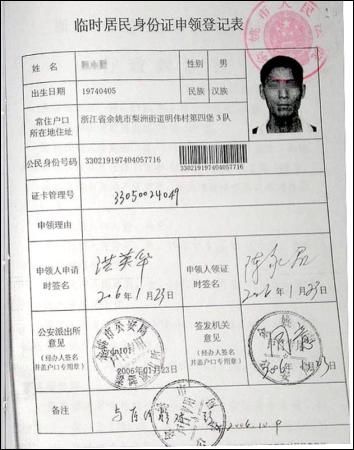 临时居民身份证申领登记表
姓名 性别 男
出生日期 19740405 民族 汉族
常住户口所在地住址 浙江省余姚市梨洲街道明伟村第四堡3队
公民身份号码 330219197404057716 330219197404057716
证卡管理号 33050024049
申领理由
申领人申请时签名 洪英华 2006年1月23日
申领人领证时签名 2006年1月23日
公安派出所意见
(经办人签名并盖户口专用章)
2006年01月23日
签发机关意见
(经办人签名并盖户口专用章)
备注